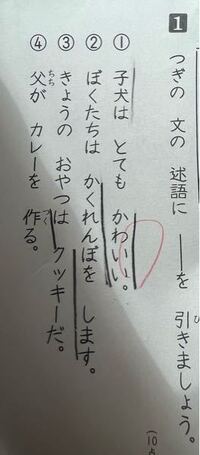 1
つぎの 文の 述語に ――を 引きましょう。
ひ
(10点
① 子犬は とても かわいい。
② ぼくたちは かくれんぼを します。
③ きょうの おやつは クッキーだ。
④ 父が カレーを 作る。
ちち
つく